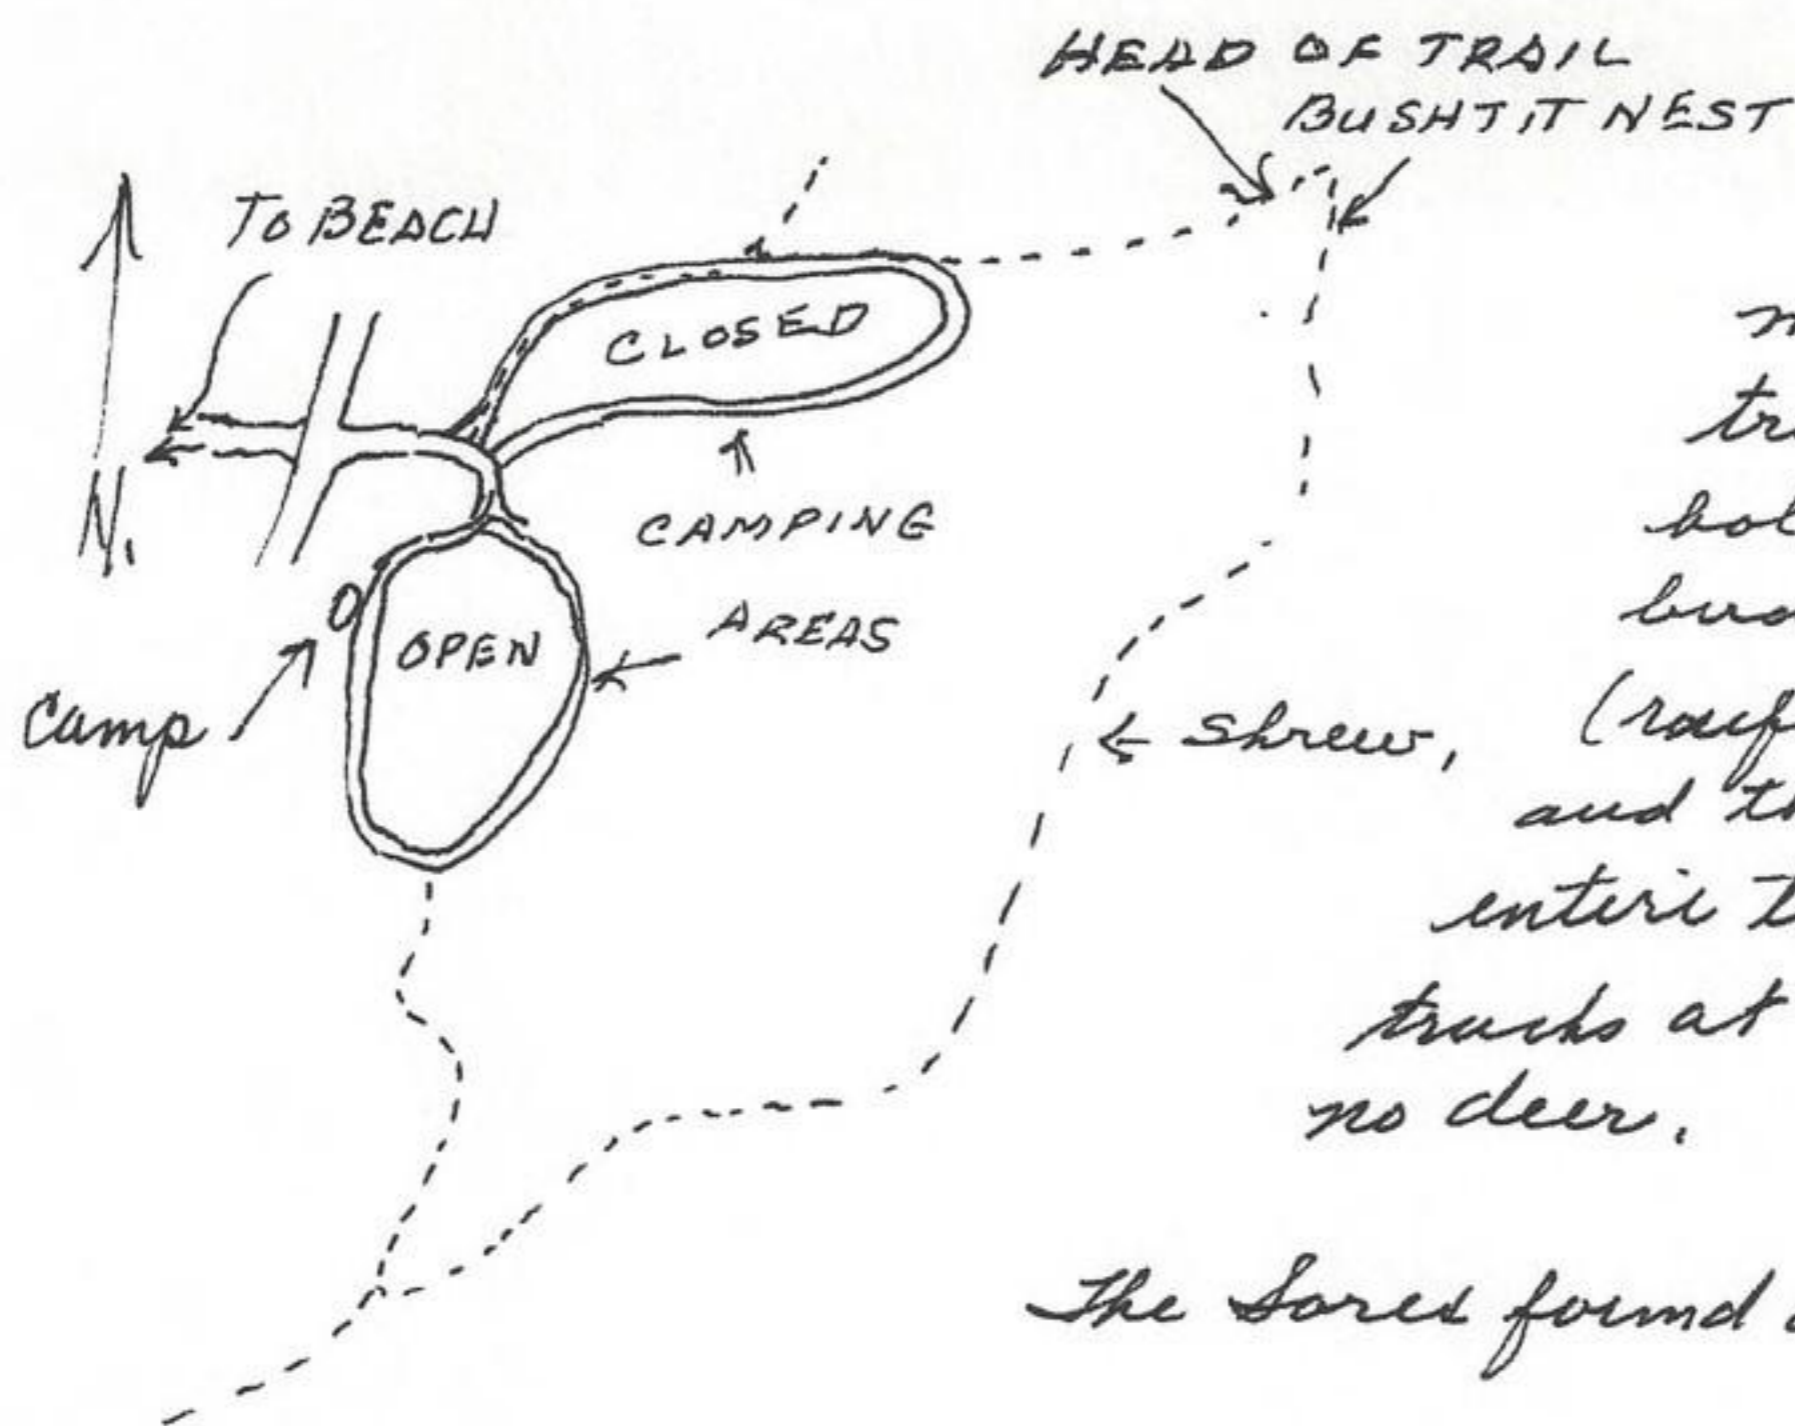 HEAD OF TRAIL
BUSHTIT NEST
TO BEACH
CLOSED
N.
CAMPING
AREAS
OPEN
Camp
shrew,
and
entire
tracks at
no deer.
The Sorex found